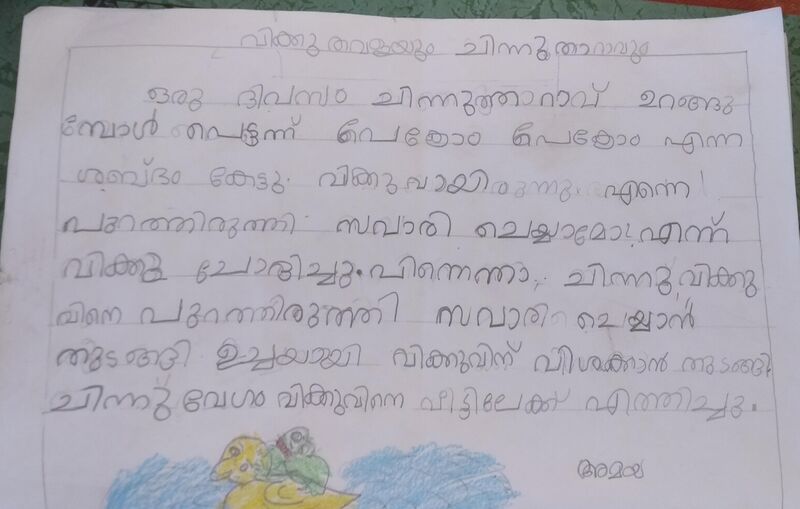 വിക്കു തവളയും ചിന്നു താറാവും
ഒരു ദിവസം ചിന്നുത്താറാവ് ഉറങ്ങു
മ്പോൾ പെട്ടന്ന് പെക്രോം പെക്രോം എന്ന
ശബ്ദം കേട്ടു. വിക്കുവായിരുന്നു. എന്നെ
പുറത്തിരുത്തി സവാരി ചെയ്യാമോ! എന്ന്
വിക്കു ചോദിച്ചു. പിന്നെന്താ, ചിന്നു വിക്കു
വിനെ പുറത്തിരുത്തി സവാരി ചെയ്യാൻ
തുടങ്ങി ഉച്ചയായി വിക്കുവിന് വിശക്കാൻ തുടങ്ങി.
ചിന്നു വേഗം വിക്കുവിനെ വീട്ടിലേക്ക് എത്തിച്ചു.
അമയ